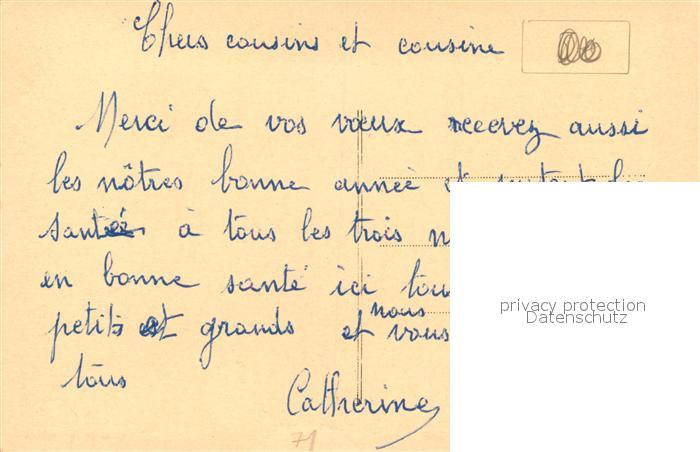 Chers cousins et cousine
Merci de vos vœux recevez aussi
les nôtres bonne année et surtout
santé à tous les trois
en bonne santé ici
petits et grands et nous vous
tous
Catherine
71
privacy protection
Datenschutz